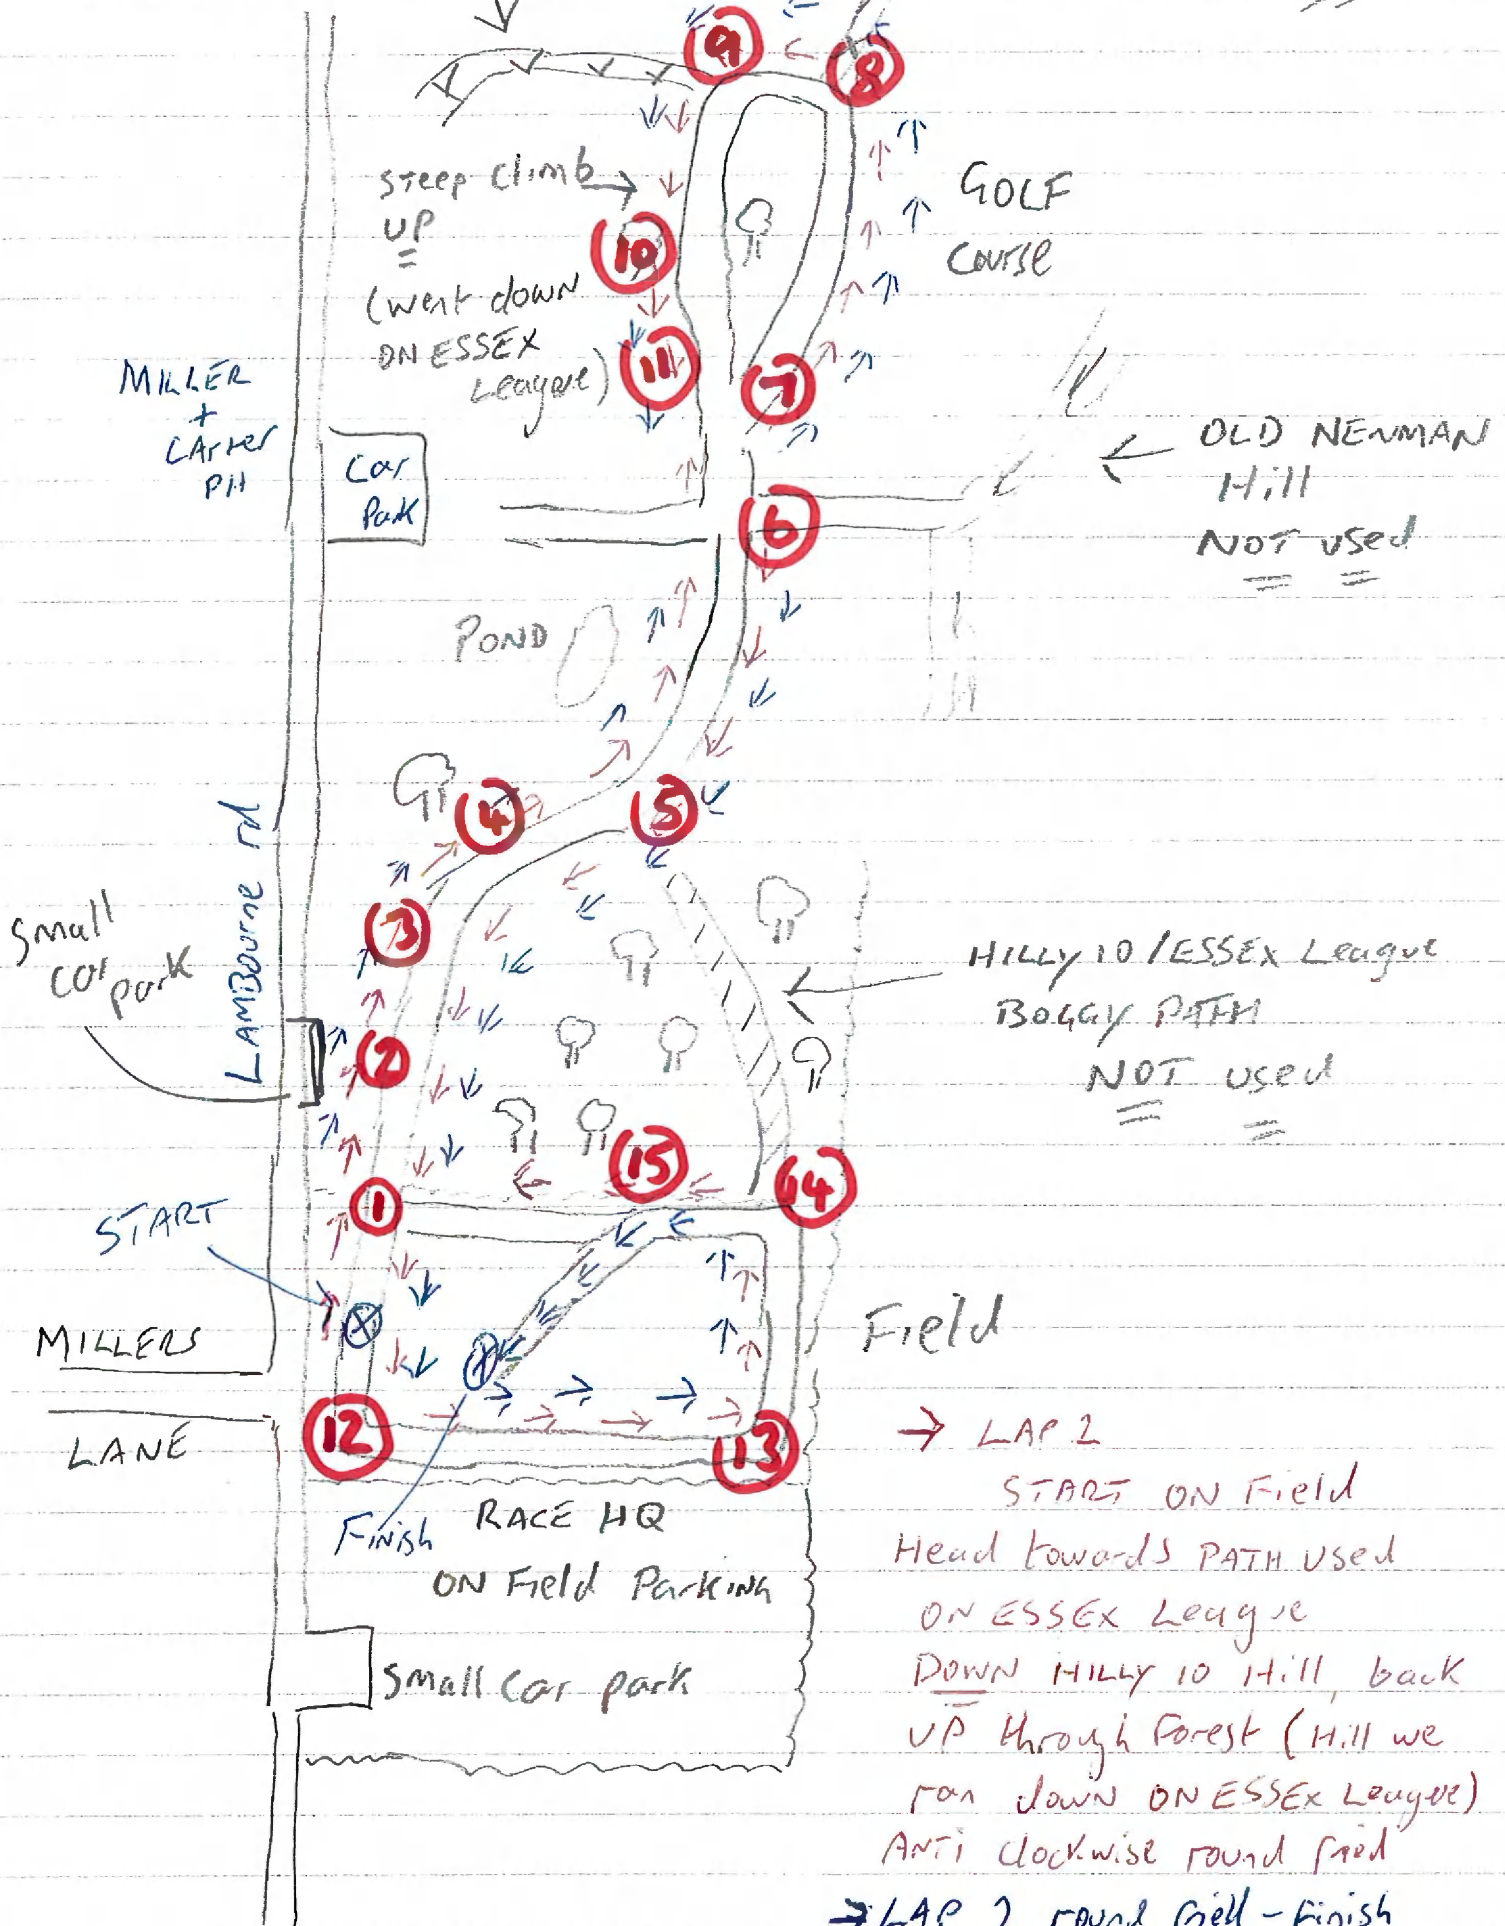 9
8
STEEP Climb
UP
(went down
ON ESSEX
League)
10
11
7
GOLF
COURSE
MILLER
+
CArter
PH
Car
Park
6
OLD NENMAN
Hill
NOT used
POND
4
5
3
LAMBourne rd
Small
car park
2
HILLY 10 / ESSEX League
BOGGY PATH
NOT used
15
14
1
START
MILLERS
LANE
Field
12
13
Finish
RACE HQ
ON Field Parking
Small Car park
→ LAP 1
START ON Field
Head towards PATH used
ON ESSEX League
DOWN HILLY 10 Hill, back
UP through Forest (Hill we
ran down ON ESSEX League)
ANTi clockwise round field
→ LAP 2 round field - Finish